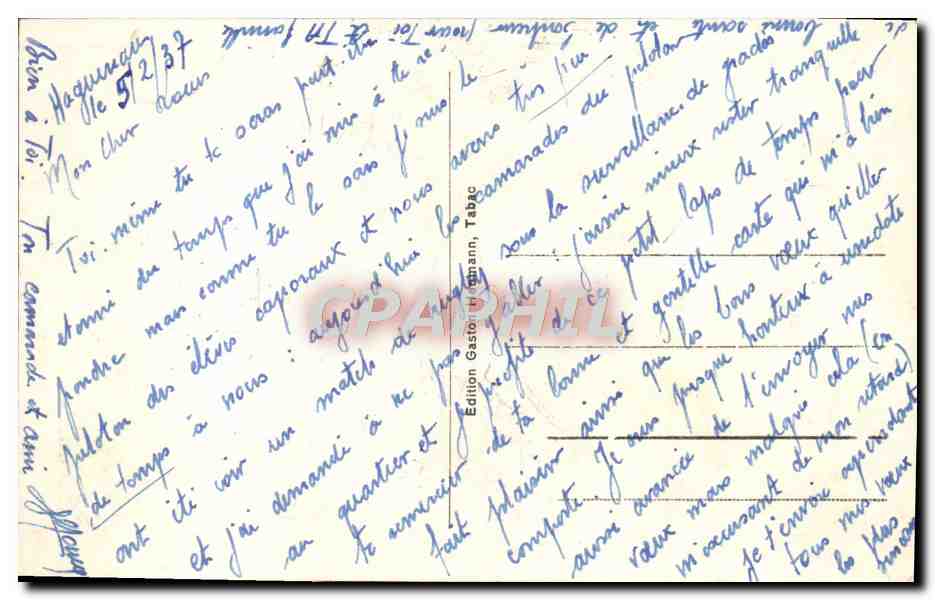 Haguenau
le 5/2/37
Mon Cher Louis
Toi-même tu te seras peut-être
étonné du temps que j'ai mis à te ré
pondre mais comme tu le sais je suis le
peloton des élèves caporaux et nous avons très peu
de temps à nous : aujourd'hui les camarades du peloton
ont été voir un match de rugby sous la surveillance de gradés
et j'ai demandé à ne pas y aller j'aime mieux rester tranquille
au quartier et je profite de ce petit laps de temps pour
te remercier de ta bonne et gentille carte qui m'a bien
fait plaisir ainsi que les bons vœux qu'elle
comporte... Je suis presque honteux à une date
aussi avancée de t'envoyer mes
vœux mais malgré cela (en
m'excusant de mon retard)
je t'envoie cependant
tous mes vœux
les plus
sincères
de bonne santé et de bonheur pour Toi et TA famille
Bien à Toi. Ton camarade et ami
Edition Gaston Hermann, Tabac
CPAPHIL